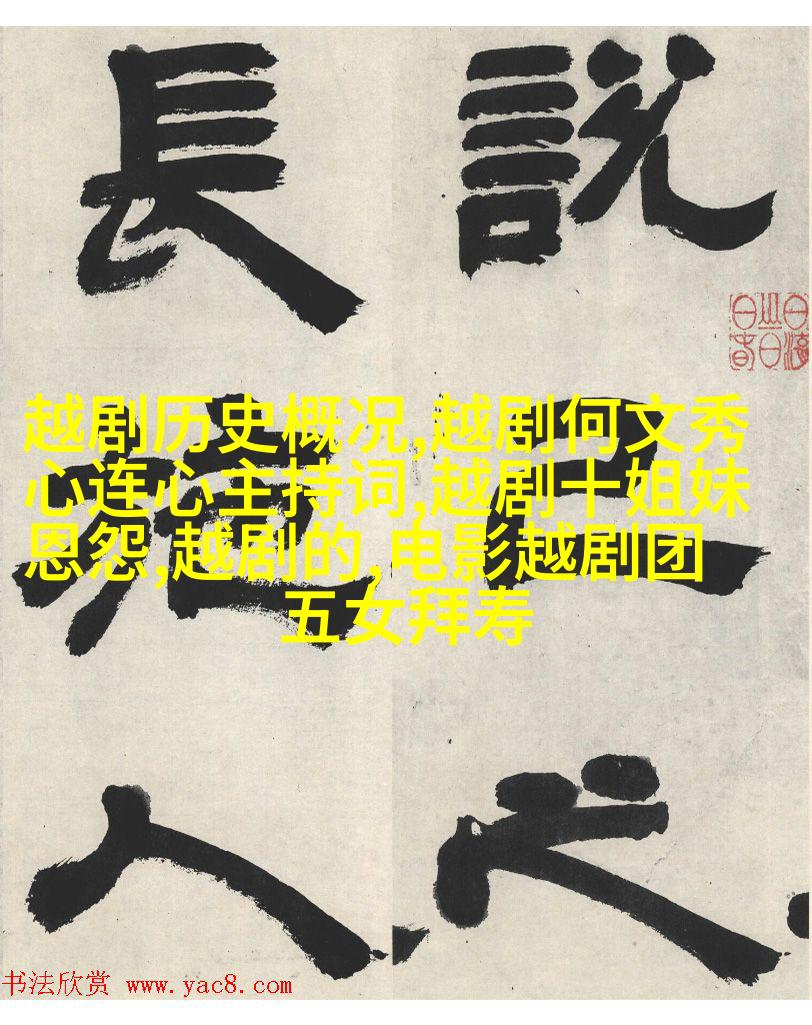 說己之
長施人
越剧历史概况,越剧何文秀
心连心主持词,越剧十姐妹
恩怨,越剧的,电影越剧团
五女拜寿
书法欣赏 www.yac8.com